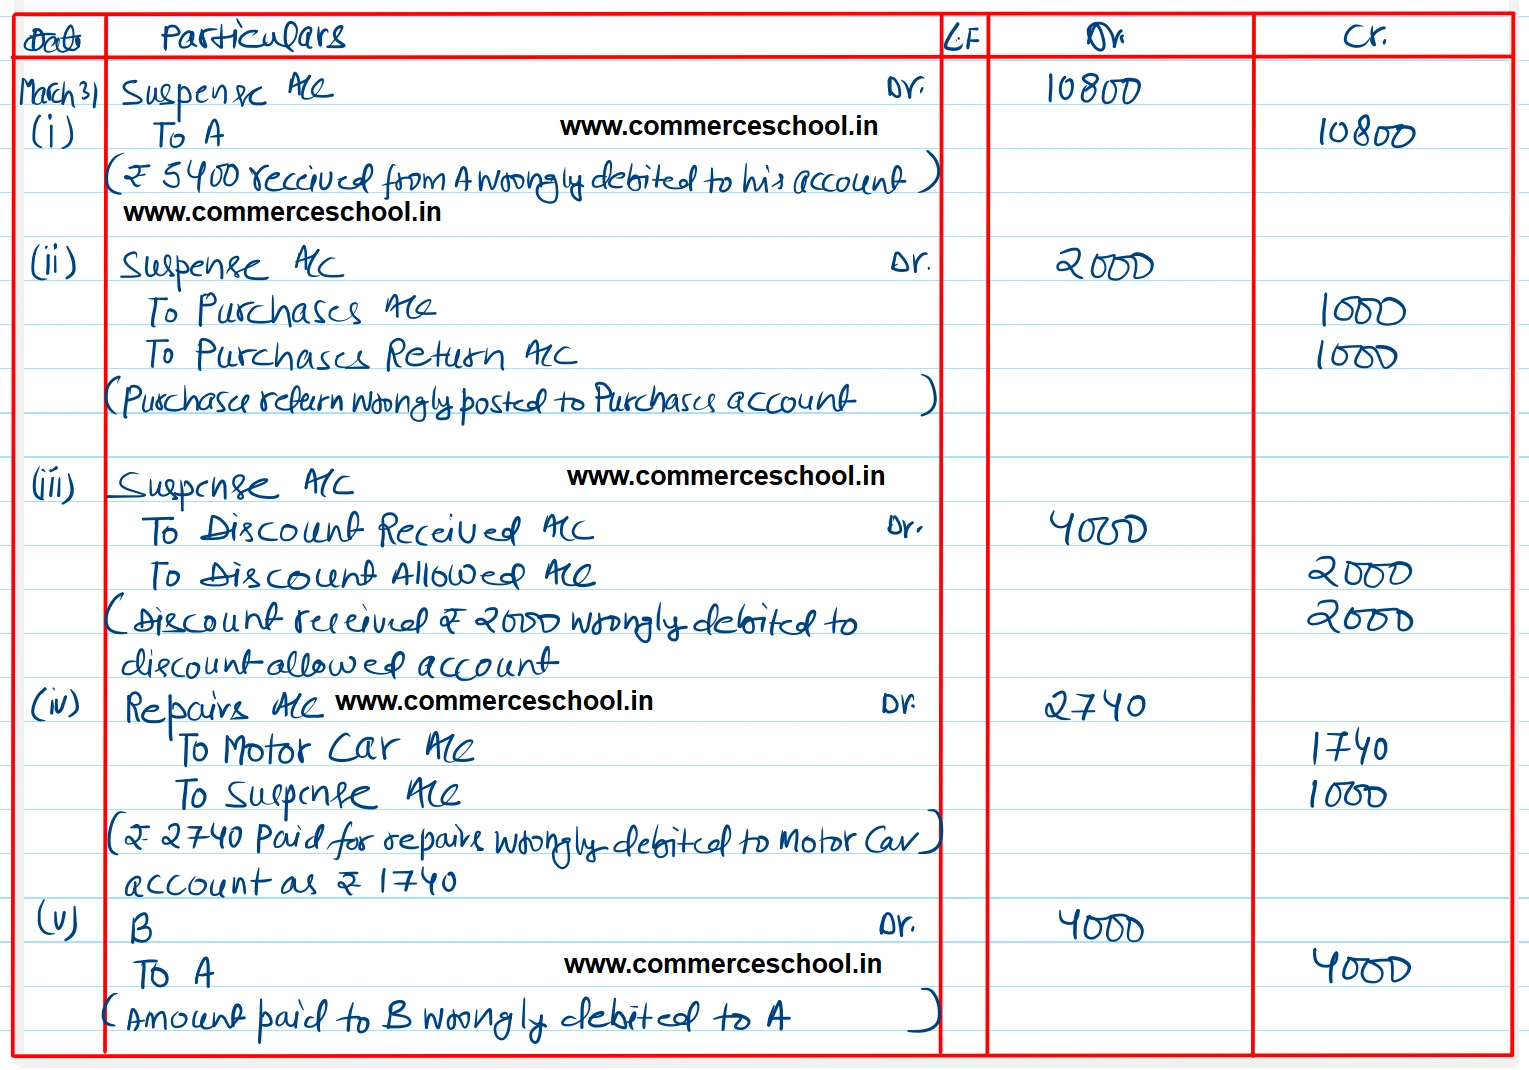 Date Particulars L.F Dr. Cr.
March 31 Suspense A/c Dr. 10800
(i) To A www.commerceschool.in 10800
(₹ 5400 received from A wrongly debited to his account)
www.commerceschool.in
(ii) Suspense A/c Dr. 2000
To Purchases A/c 1000
To Purchases Return A/c 1000
(Purchase return wrongly posted to Purchases account)
(iii) Suspense A/c www.commerceschool.in
To Discount Received A/c Dr. 4000
To Discount Allowed A/c 2000
(Discount received ₹ 2000 wrongly debited to 2000
discount allowed account
(iv) Repairs A/c www.commerceschool.in Dr. 2740
To Motor Car A/c 1740
To Suspense A/c 1000
(₹ 2740 Paid for repairs wrongly debited to Motor Car)
account as ₹ 1740
(v) B Dr. 4000
To A www.commerceschool.in 4000
(Amount paid to B wrongly debited to A)